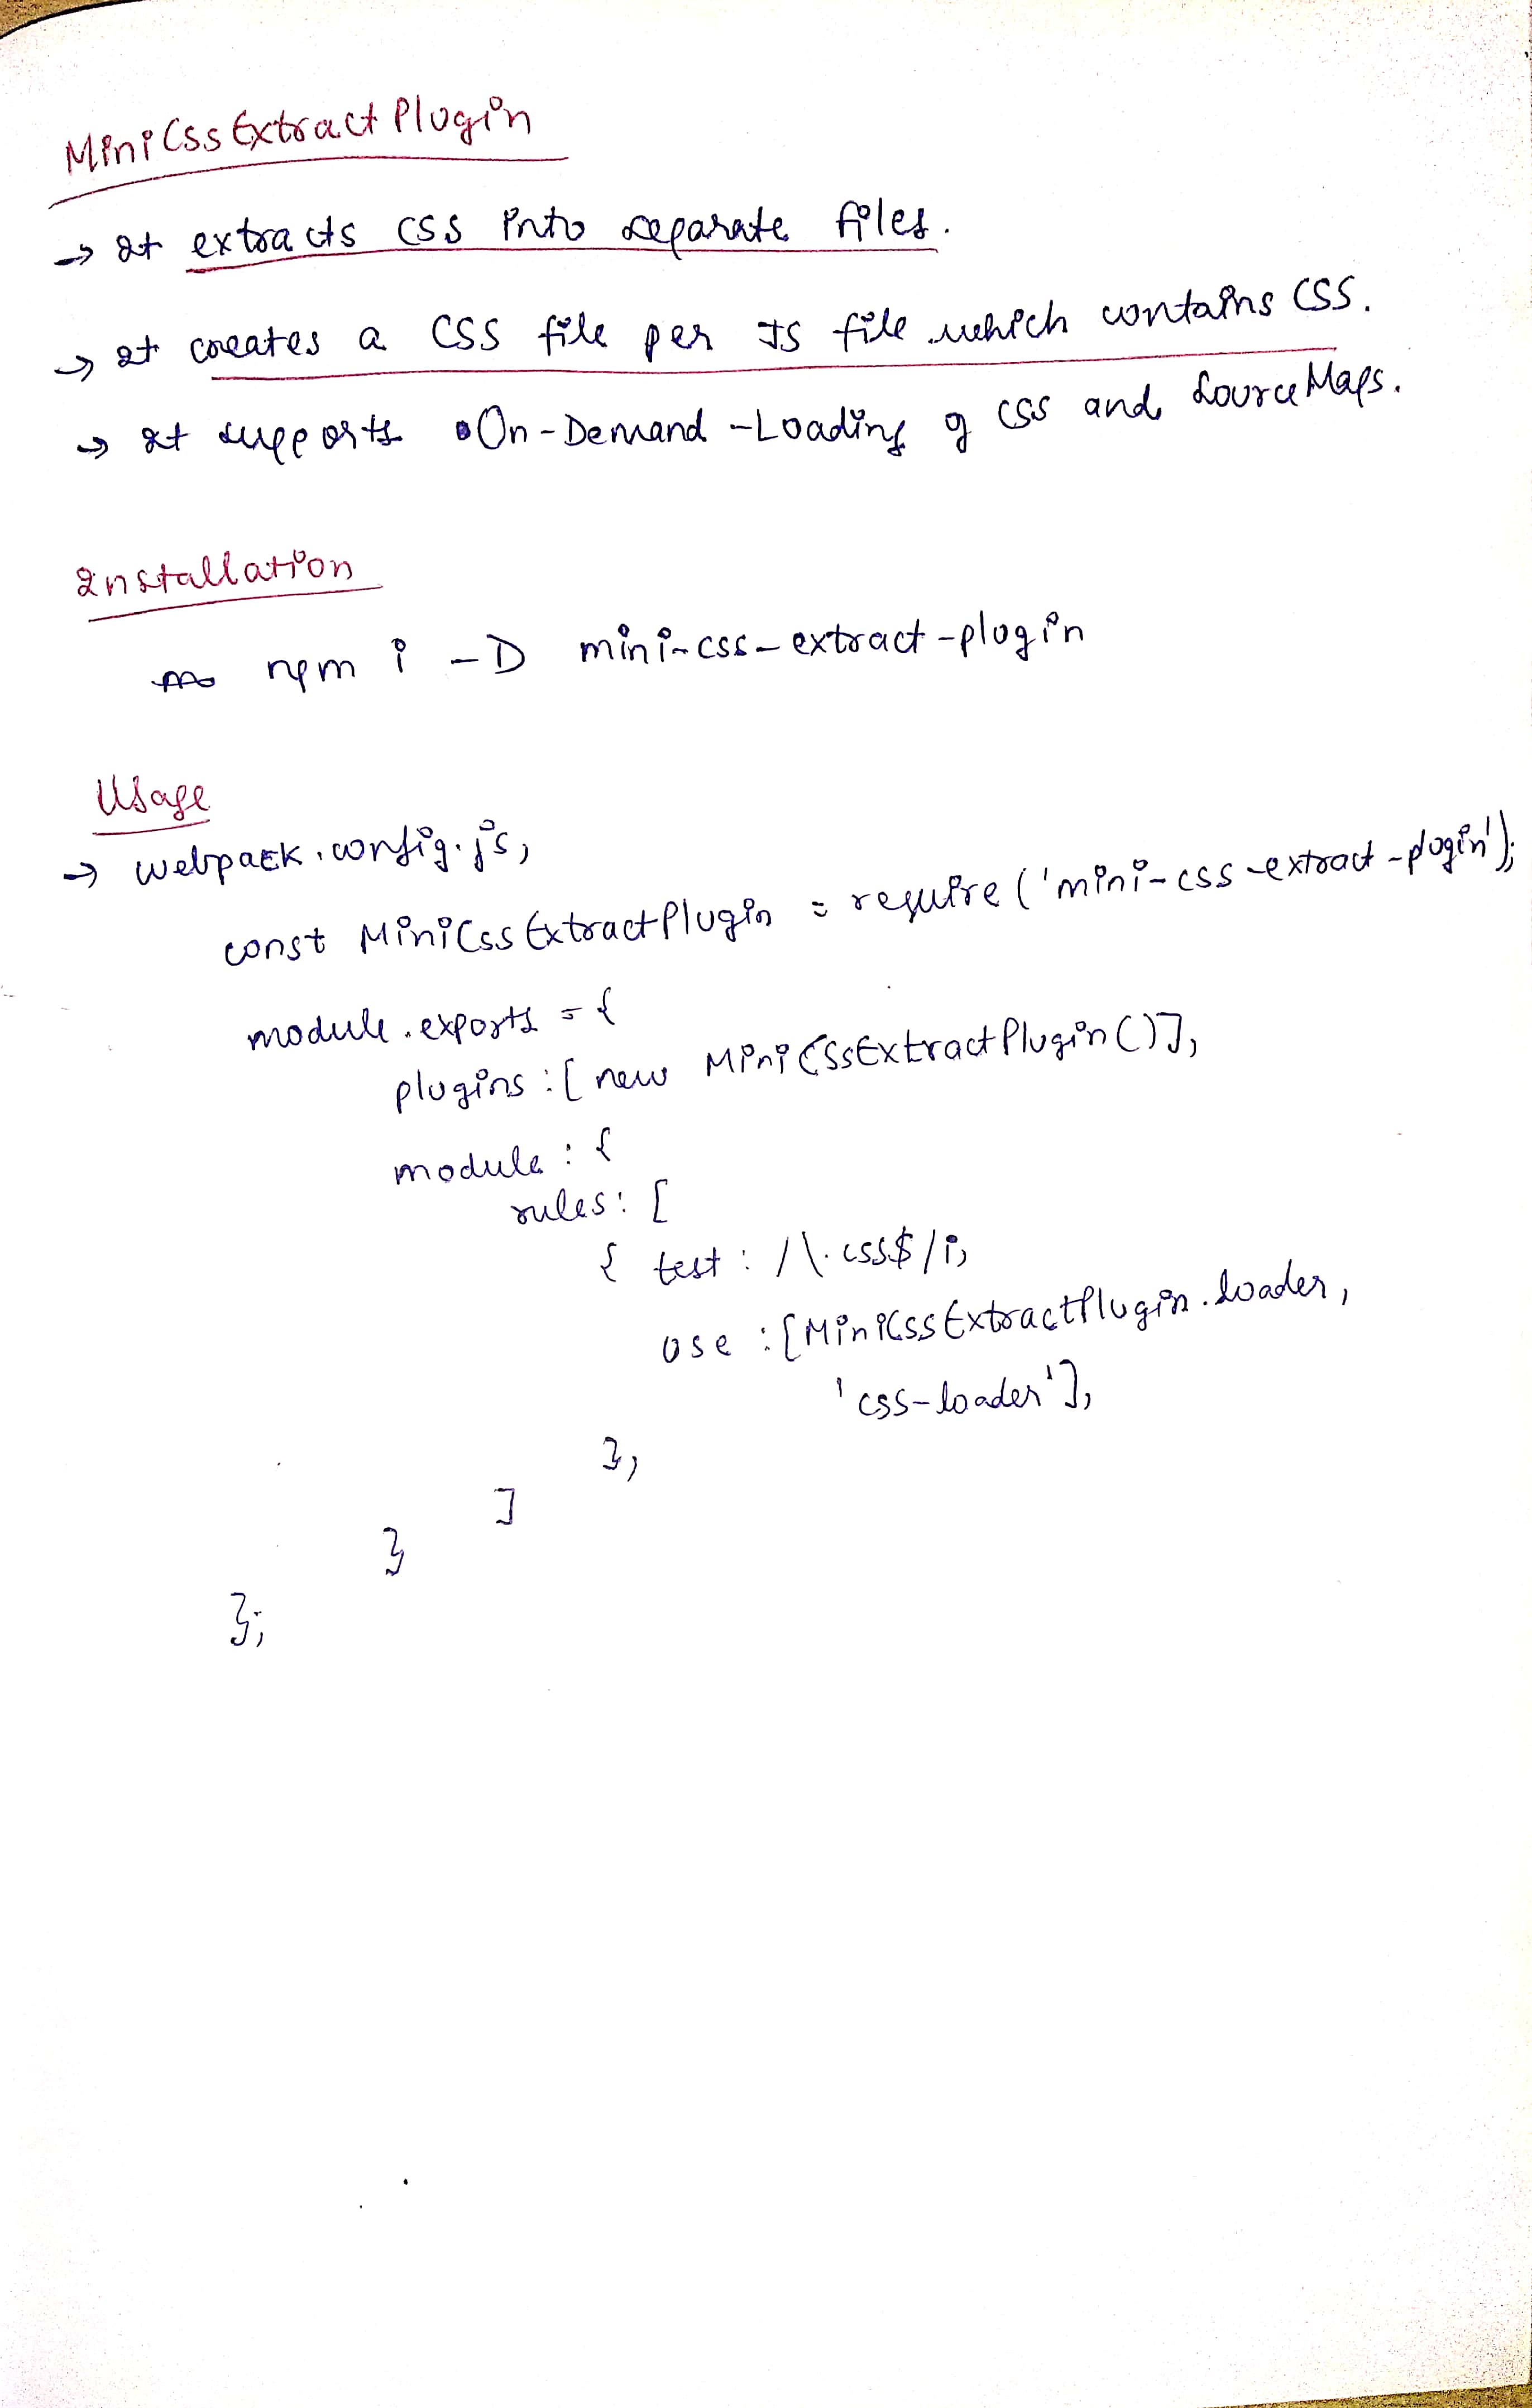 MiniCssExtractPlugin
→ It extracts CSS into separate files.
→ It creates a CSS file per JS file which contains CSS.
→ It supports On-Demand-Loading of CSS and SourceMaps.
Installation
npm i -D mini-css-extract-plugin
Usage
→ webpack.config.js,
const MiniCssExtractPlugin = require('mini-css-extract-plugin');
module.exports = {
plugins: [new MiniCssExtractPlugin()],
module: {
rules: [
{ test: /\.css$/i,
use: [MiniCssExtractPlugin.loader,
'css-loader'],
},
]
}
};